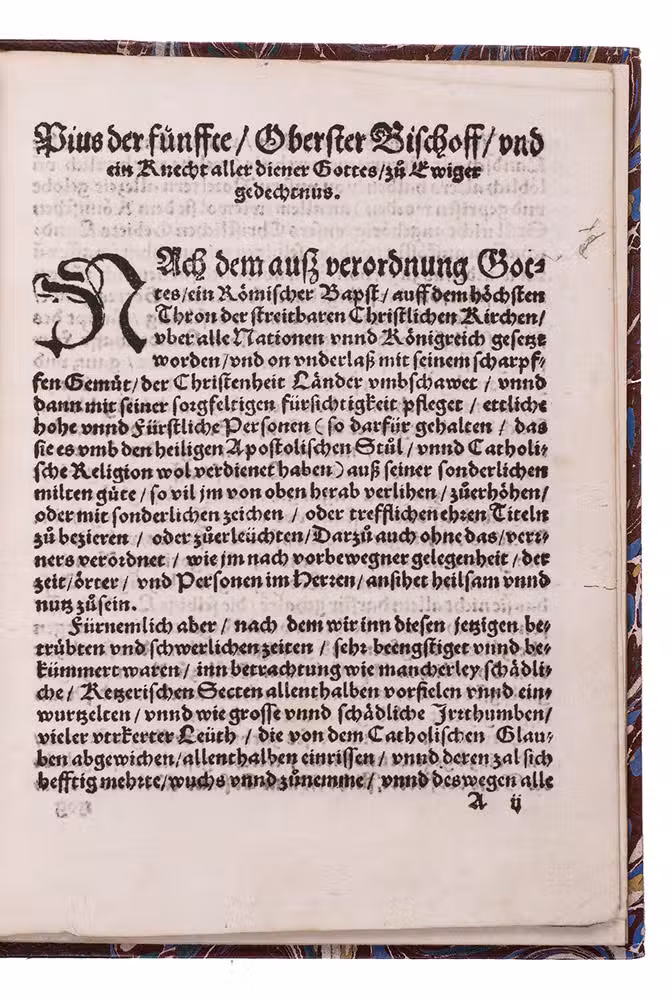 Pius der fünffte / Oberster Bischoff / vnd
ein Knecht aller diener Gottes / zů Ewiger
gedechtnus.
NAch dem auß verordnung Got⸗
tes / ein Römischer Bapst / auff dem höchsten
Thron der streitbaren Christlichen Kirchen /
vber alle Nationen vnnd Königreich gesetzt
worden / vnd on vnderlaß mit seinem scharpf⸗
fen Gemüt / der Christenheit Länder vmbschawet / vnnd
dann mit seiner sorgfeltigen fürsichtigkeit pfleget / ettliche
hohe vnnd Fürstliche Personen (so darfür gehalten / das
sie es vmb den heiligen Apostolischen Stůl / vnnd Catholi⸗
sche Religion wol verdienet haben) auß seiner sonderlichen
milten güte / so vil jm von oben herab verlihen / zůerhöhen /
oder mit sonderlichen zeichen / oder trefflichen ehren Titeln
zů bezieren / oder zůerleüchten / Darzů auch ohne das / verr⸗
ners verordnet / wie jm nach vorbewegner gelegenheit / der
zeit / örter / vnd Personen im Herren / ansihet heilsam vnnd
nutz zůsein.
Fürnemlich aber / nach dem wir inn diesen jetzigen be⸗
trübten vnd schwerlichen zeiten / sehr beengstiget vnnd be⸗
kümmert waren / inn betrachtung wie mancherley schädli⸗
che / Ketzerischen Secten allenthalben vorfielen vnnd ein⸗
wurtzelten / vnnd wie grosse vnnd schädliche Jrrthumben /
vieler vtrkerter Leüth / die von dem Catholischen Glau⸗
ben abgewichen / allenthalben einrissen / vnnd deren zal sich
hefftig mehrte / wuchs vnnd zůnemme / vnnd deswegen alle
A ij